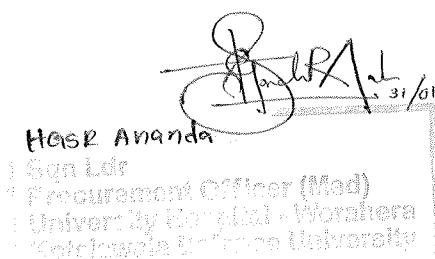 31/01
HGSR Ananda
Sqn Ldr
Procurement Officer (Med)
University Hospital - Werahera
Kotelawala Defence University